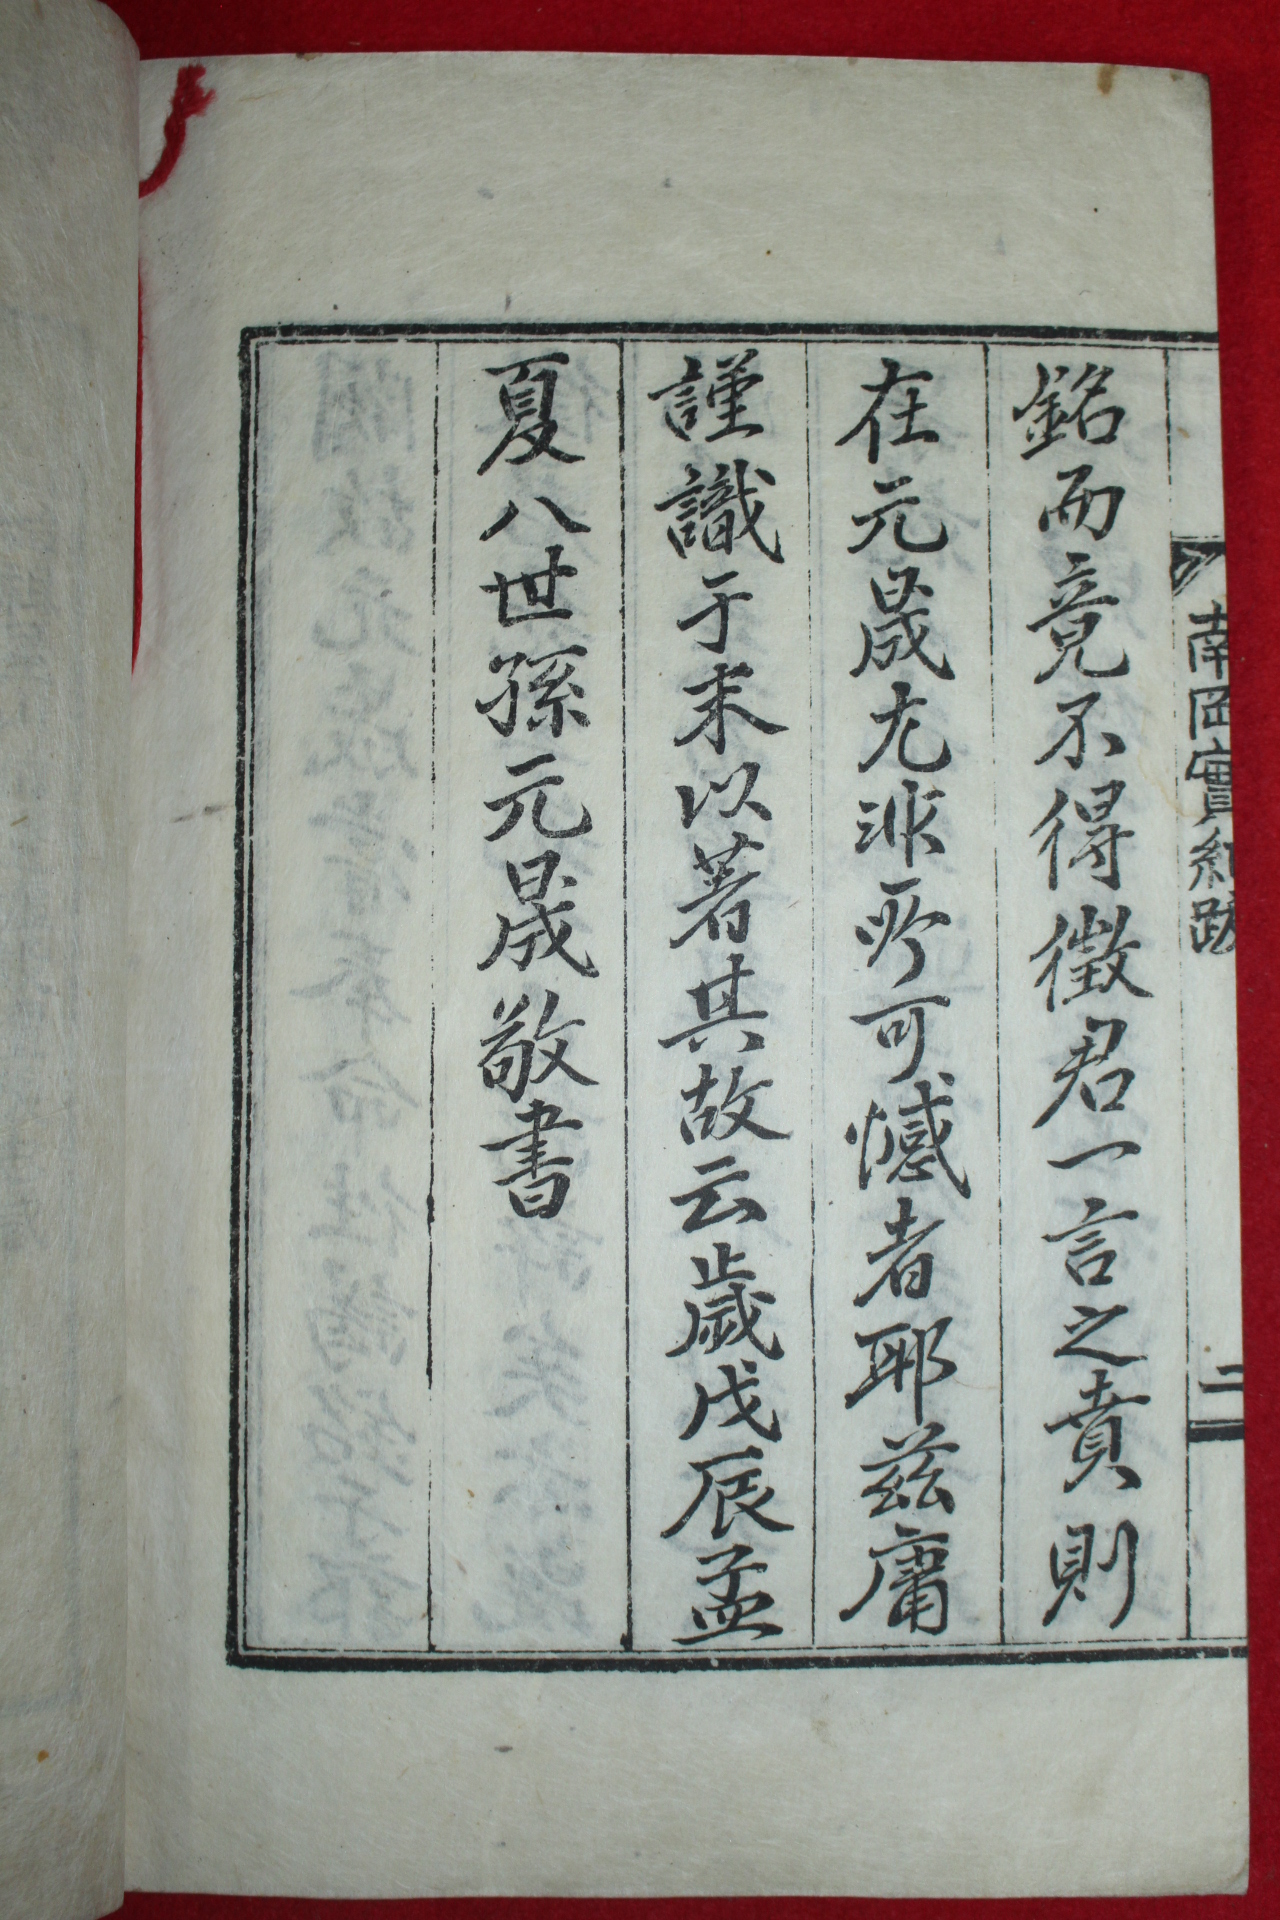 銘而竟不得徵君一言之賁則
在元晟尤非所可憾者耶玆庸
謹識于末以著其故云歲戊辰孟
夏八世孫元晟敬書
南岡實紀跋
二